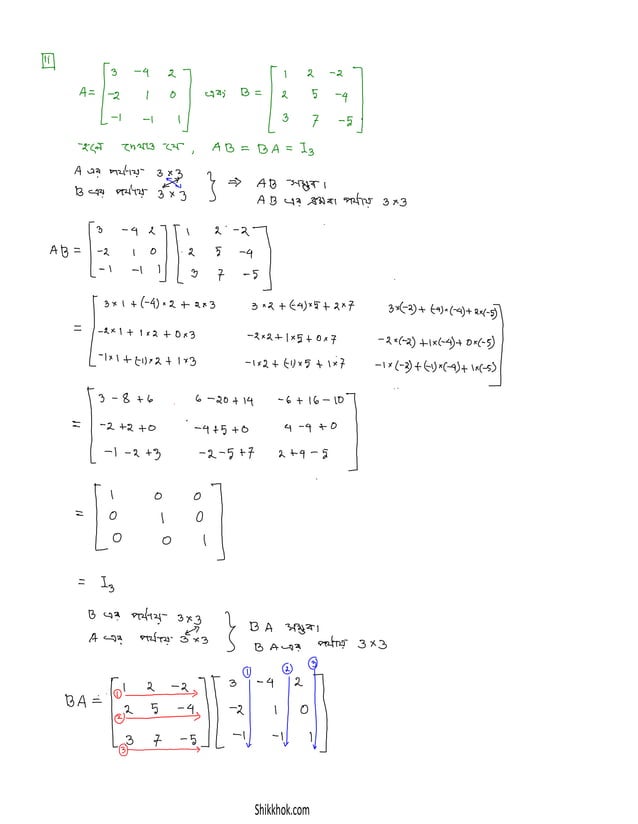 11
A = [ 3 -4 2
-2 1 0
-1 -1 1 ] এবং B = [ 1 2 -2
2 5 -4
3 7 -5 ]
হলে দেখাও যে, AB = BA = I₃
A এর পর্যায় 3×3
B এর পর্যায় 3×3 } ⇒ AB সম্ভব।
AB এর পর্যায় 3×3
AB = [ 3 -4 2
-2 1 0
-1 -1 1 ] [ 1 2 -2
2 5 -4
3 7 -5 ]
= [ 3×1+(-4)×2+2×3 3×2+(-4)×5+2×7 3×(-2)+(-4)×(-4)+2×(-5)
-2×1+1×2+0×3 -2×2+1×5+0×7 -2×(-2)+1×(-4)+0×(-5)
-1×1+(-1)×2+1×3 -1×2+(-1)×5+1×7 -1×(-2)+(-1)×(-4)+1×(-5) ]
= [ 3-8+6 6-20+14 -6+16-10
-2+2+0 -4+5+0 4-4+0
-1-2+3 -2-5+7 2+4-5 ]
= [ 1 0 0
0 1 0
0 0 1 ]
= I₃
B এর পর্যায় 3×3
A এর পর্যায় 3×3 } BA সম্ভব।
BA এর পর্যায় 3×3
① ② ③
BA = [ ① 1 2 -2
② 2 5 -4
③ 3 7 -5 ] [ 3 -4 2
-2 1 0
-1 -1 1 ]
Shikkhok.com